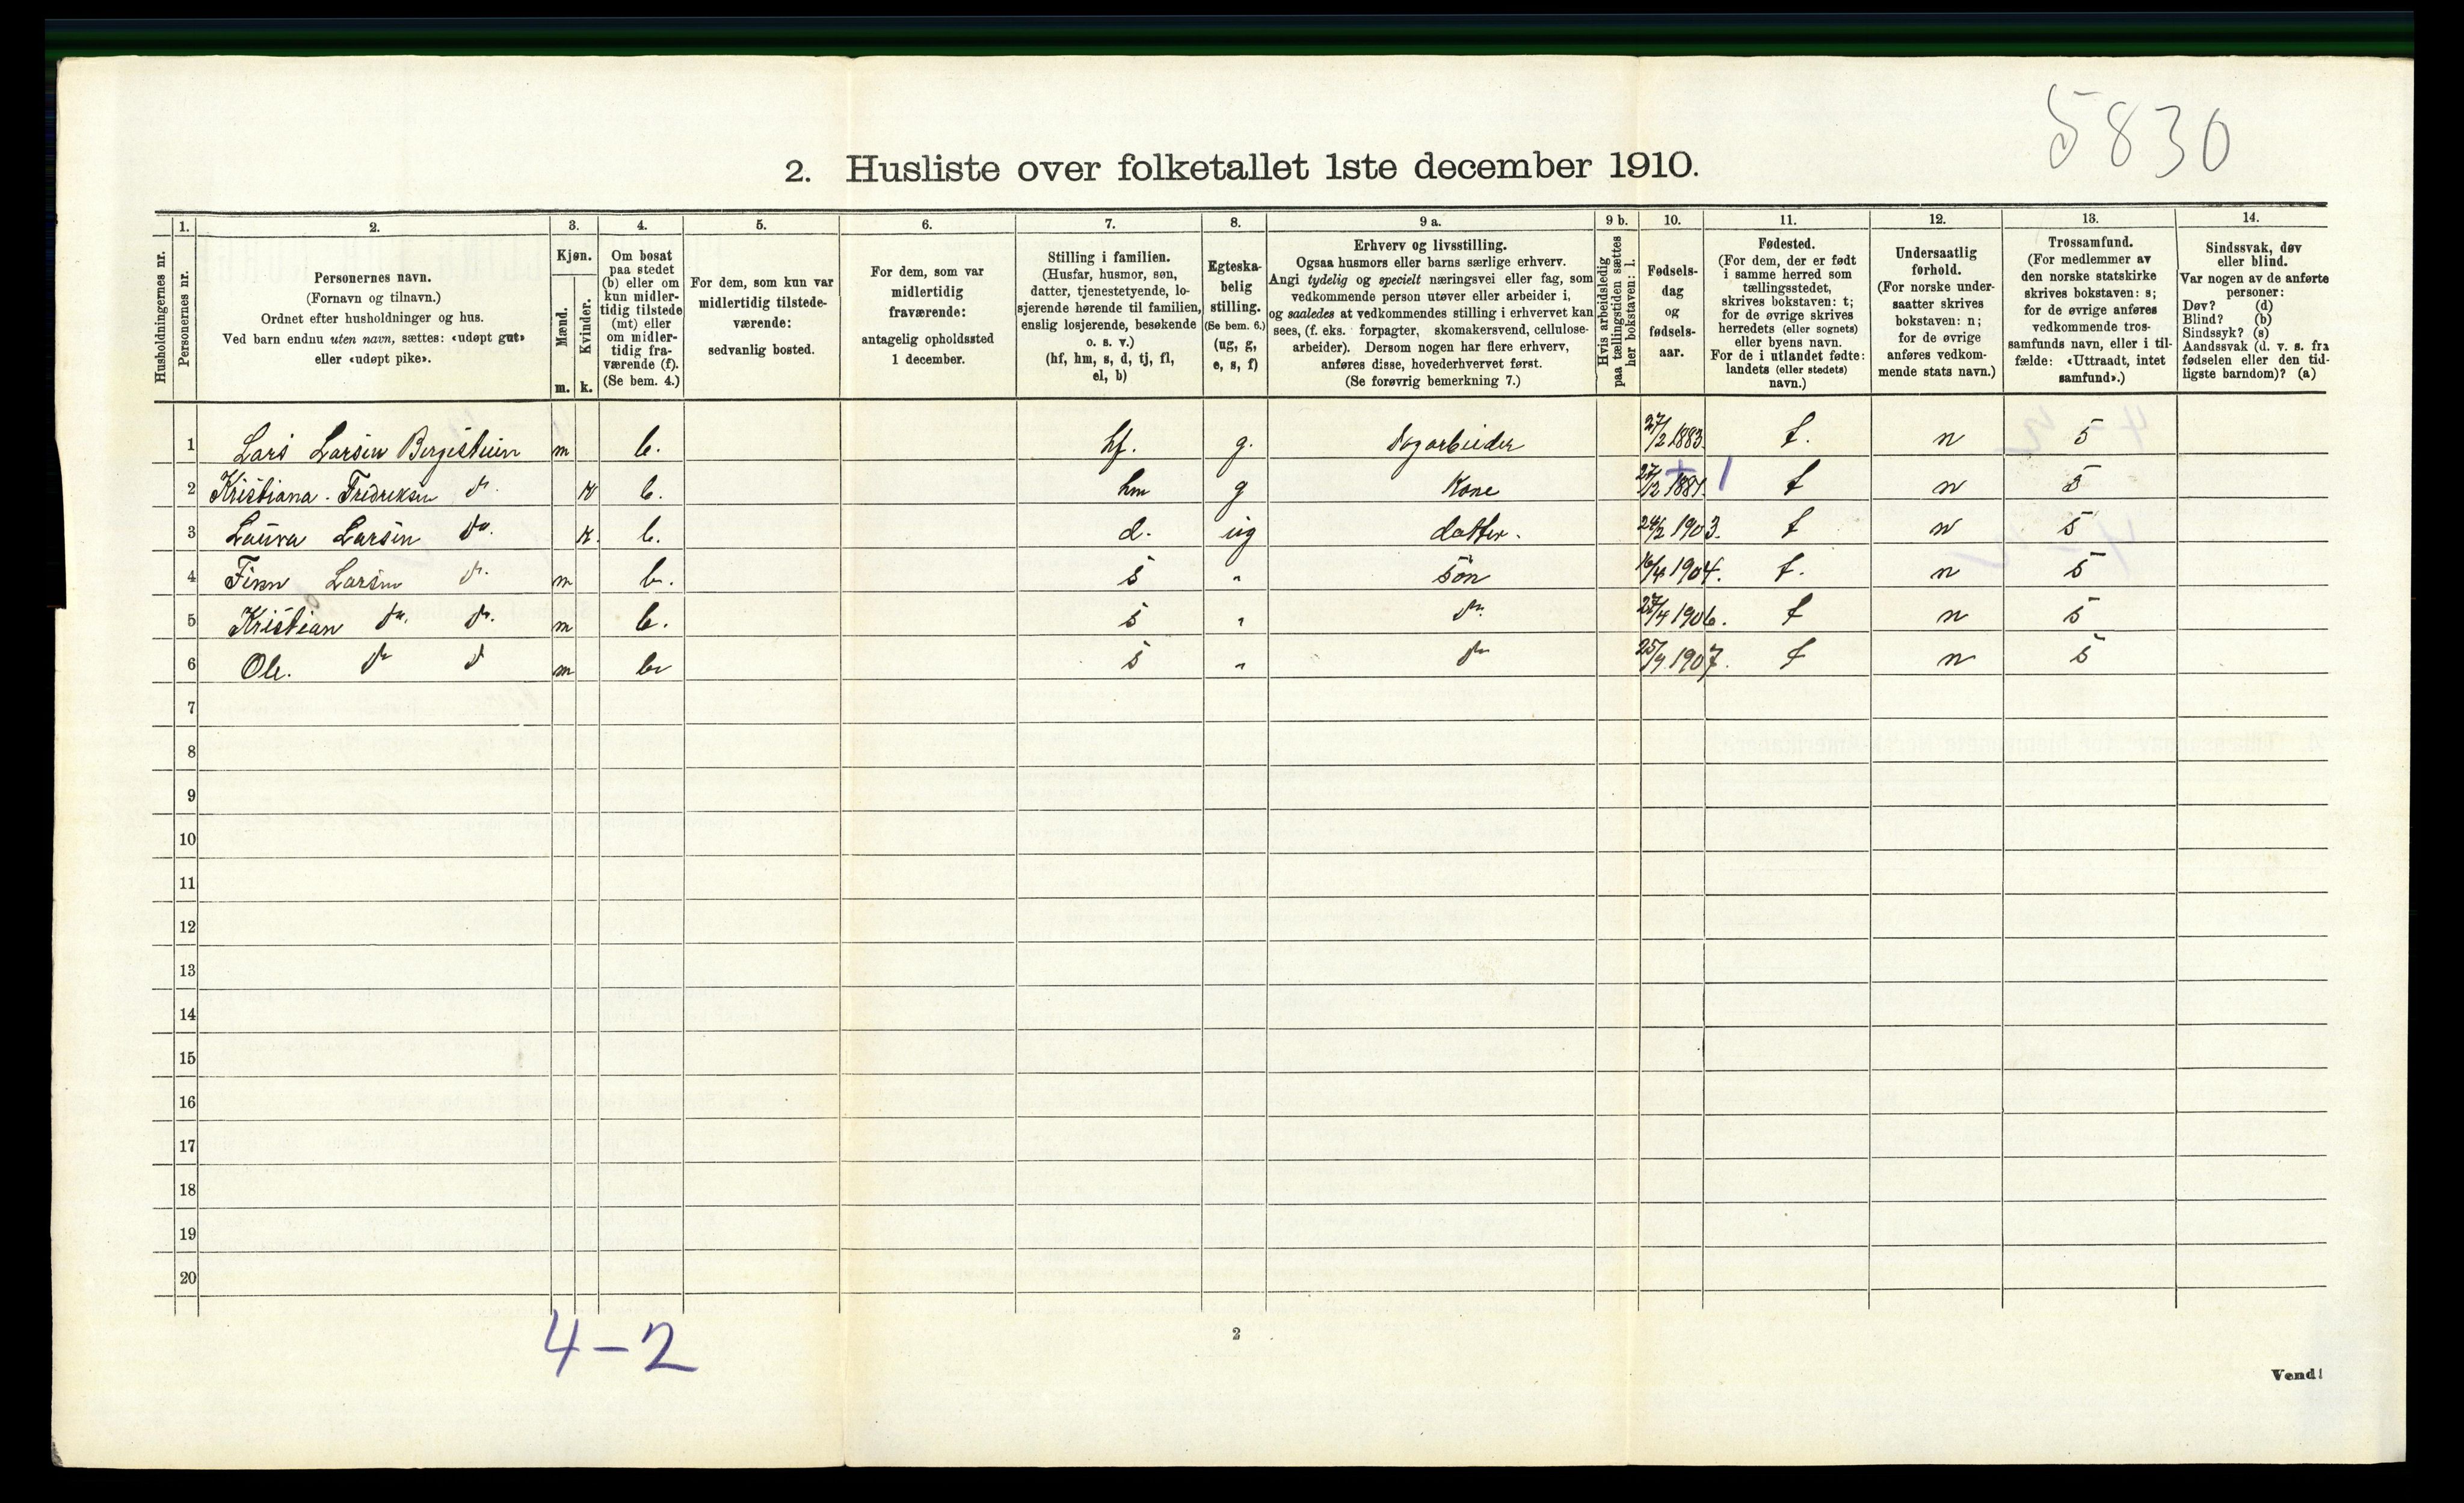 5830
2. Husliste over folketallet 1ste december 1910.
Husholdningernes nr.
1.
Personernes nr.
2.
Personernes navn.
(Fornavn og tilnavn.)
Ordnet efter husholdninger og hus.
Ved barn endnu uten navn, sættes: «udøpt gut»
eller «udøpt pike».
3.
Kjøn.
Mænd.
m.
Kvinder.
k.
4.
Om bosat
paa stedet
(b) eller om
kun midler-
tidig tilstede
(mt) eller
om midler-
tidig fra-
værende (f).
(Se bem. 4.)
5.
For dem, som kun var
midlertidig tilstede-
værende:
sedvanlig bosted.
6.
For dem, som var
midlertidig
fraværende:
antagelig opholdssted
1 december.
7.
Stilling i familien.
(Husfar, husmor, søn,
datter, tjenestetyende, lo-
sjerende hørende til familien,
enslig losjerende, besøkende
o. s. v.)
(hf, hm, s, d, tj, fl,
el, b)
8.
Egteska-
belig
stilling.
(Se bem. 6.)
(ug, g,
e, s, f)
9 a.
Erhverv og livsstilling.
Ogsaa husmors eller barns særlige erhverv.
Angi tydelig og specielt næringsvei eller fag, som
vedkommende person utøver eller arbeider i,
og saaledes at vedkommendes stilling i erhvervet kan
sees, (f. eks. forpagter, skomakersvend, cellulose-
arbeider). Dersom nogen har flere erhverv,
anføres disse, hovederhvervet først.
(Se forøvrig bemerkning 7.)
9 b.
Hvis arbeidsledig
paa tællingstiden sættes
her bokstaven: l.
10.
Fødsels-
dag
og
fødsels-
aar.
11.
Fødested.
(For dem, der er født
i samme herred som
tællingsstedet,
skrives bokstaven: t;
for de øvrige skrives
herredets (eller sognets)
eller byens navn.
For de i utlandet fødte:
landets (eller stedets)
navn.)
12.
Undersaatlig
forhold.
(For norske under-
saatter skrives
bokstaven: n;
for de øvrige
anføres vedkom-
mende stats navn.)
13.
Trossamfund.
(For medlemmer av
den norske statskirke
skrives bokstaven: s;
for de øvrige anføres
vedkommende tros-
samfunds navn, eller i til-
fælde: «Uttraadt, intet
samfund».)
14.
Sindssvak, døv
eller blind.
Var nogen av de anførte
personer:
Døv? (d)
Blind? (b)
Sindssyk? (s)
Aandssvak (d. v. s. fra
fødselen eller den tid-
ligste barndom)? (a)
1 Lars Larsen Bergestuen m b. hf. g. Sagarbeider 27/2 1883. t. n s
2 Kristiana Fredriksen do. K b. hm g Kone 1881. t n s
3 Laura Larsen do. K. b. d. ug datter. 24/2 1903. t n s
4 Finn Larsen do. m b. s " søn 16/4 1904. t. n s
5 Kristian do. do. m b. s " do. 27/4 1906. t n s
6 Ole. do do m b s " do 25/9 1907. t n s
7
8
9
10
11
12
13
14
15
16
17
18
19
20
4-2
2
Vend!